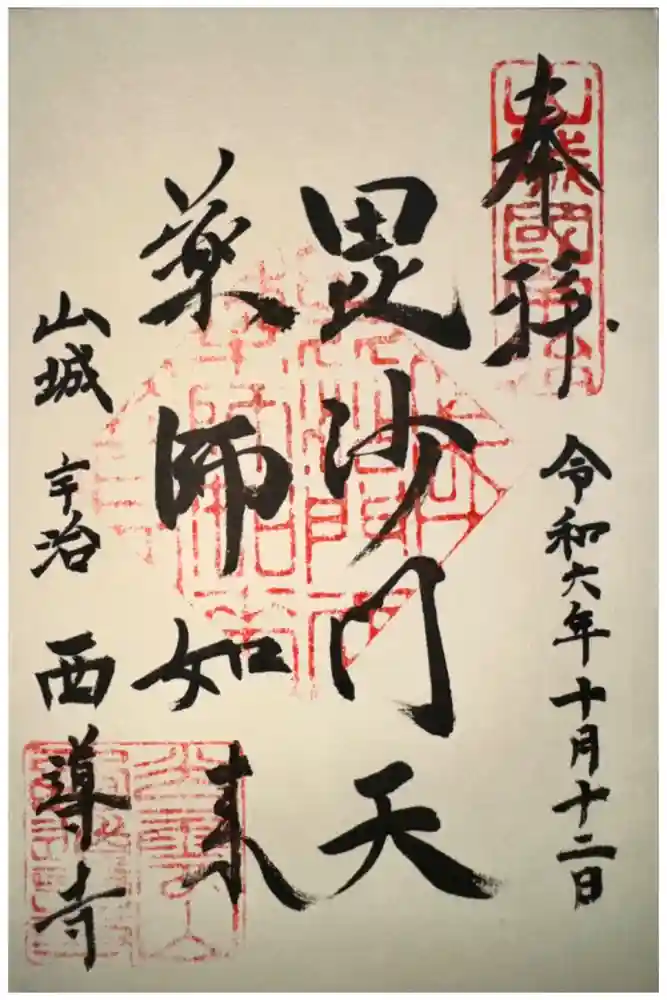 奉拝
令和六年十月十二日
毘沙門天
薬師如来
山城 宇治 西導寺